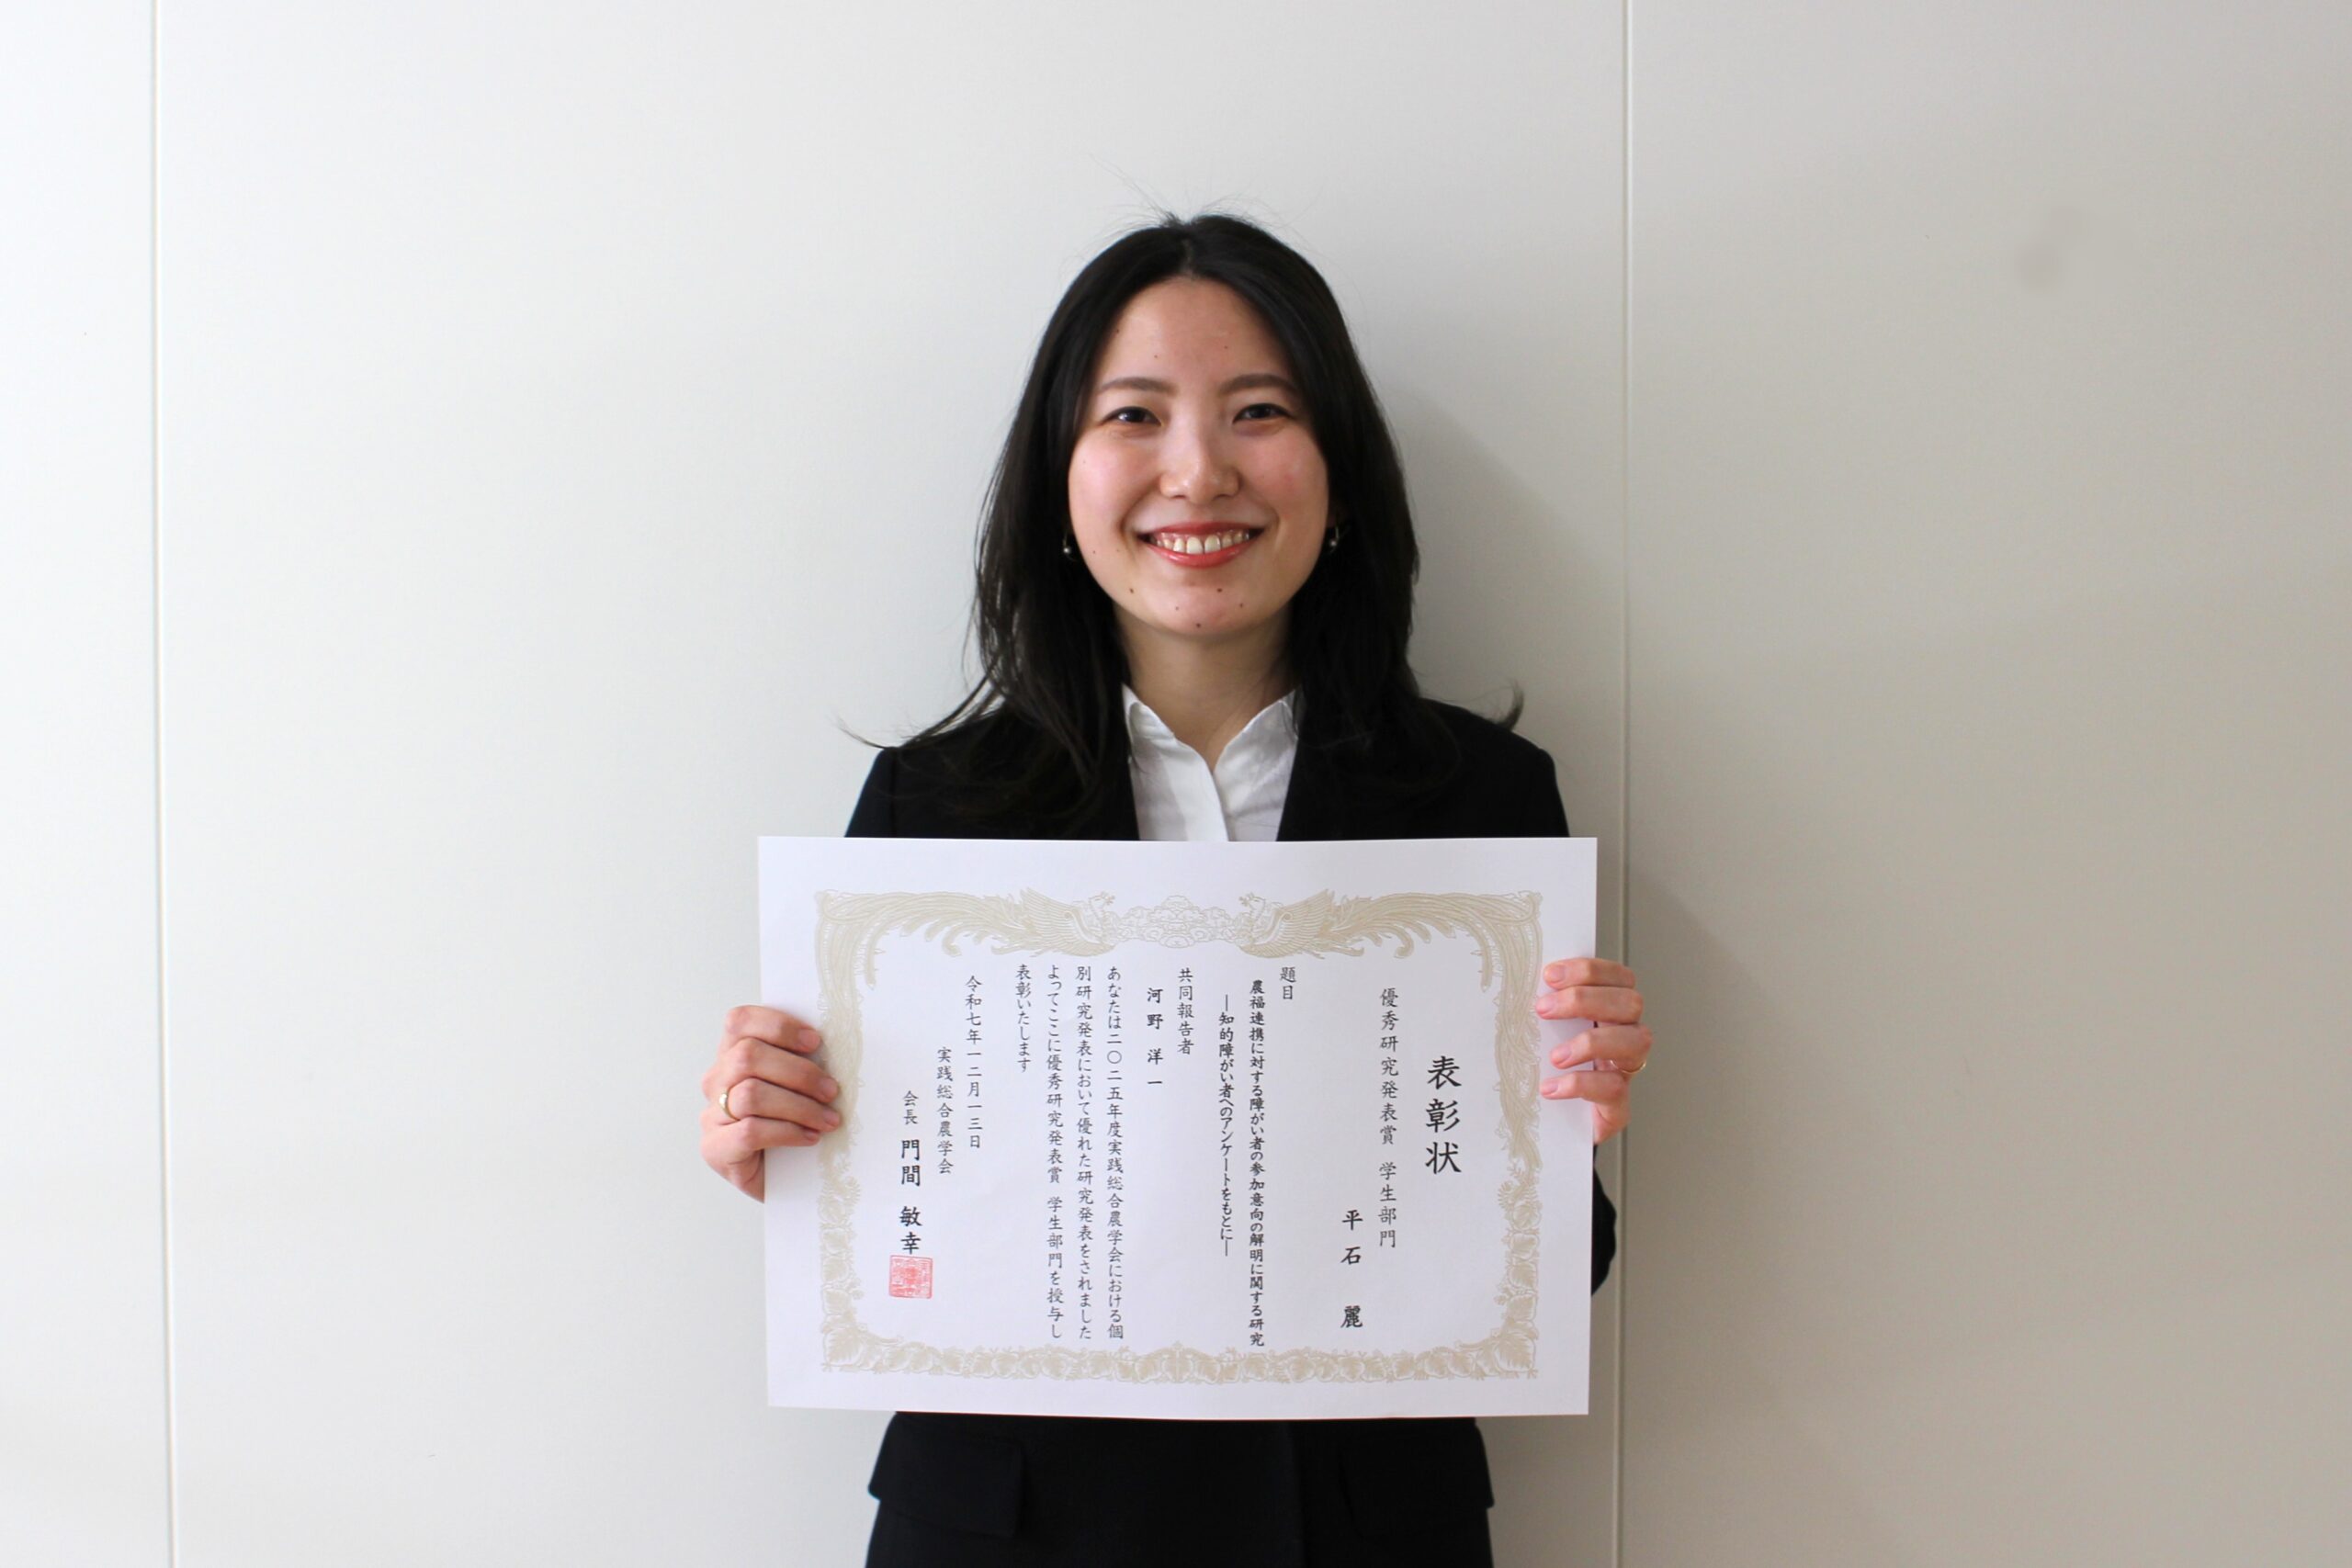 表彰状
優秀研究発表賞 学生部門
平石 麗
題目
農福連携に対する障がい者の参加意向の解明に関する研究
―知的障がい者へのアンケートをもとに―
共同報告者
河野 洋一
あなたは二〇二五年度実践総合農学会における個
別研究発表において優れた研究発表をされました
よってここに優秀研究発表賞 学生部門を授与し
表彰いたします
令和七年一二月一三日
実践総合農学会
会長 門間 敏幸